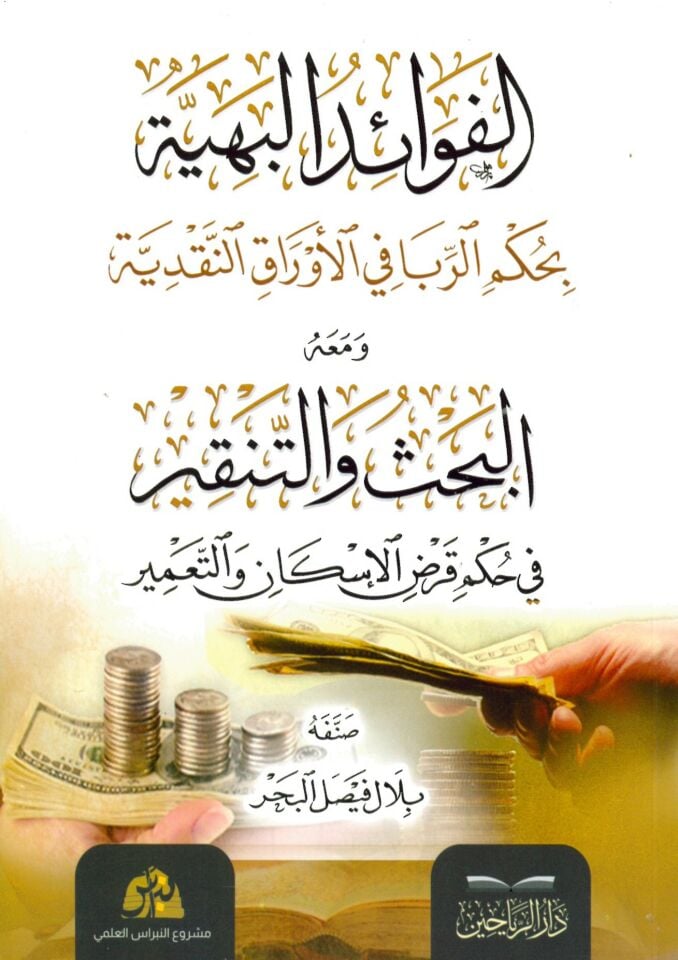 الفَوَائِدُ البَهِيَّة
بِحُكْمِ الرِّبَا فِي الأَوْرَاقِ النَّقْدِيَّة
وَمَعَهُ
البَحْثُ وَالتَّنقِيْر
فِي حُكْمِ قَرْضِ الإِسْكَانِ وَالتَّعْمِير
صَنَّفَهُ
بِلَال فَيْصَل البَحْر
دَارُ الرَّيَاحِين
نبراس
مشروع النبراس العلمي